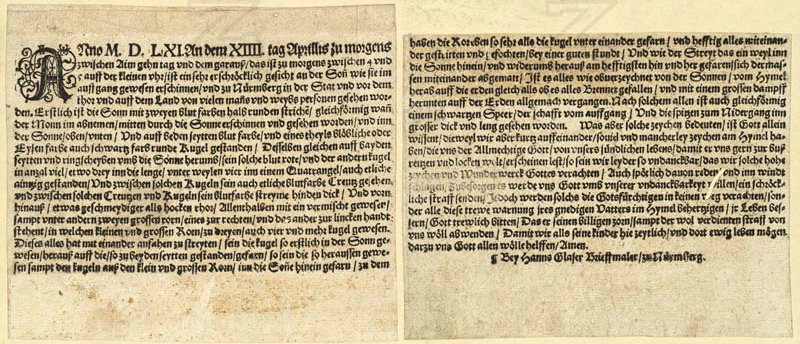 ANno M. D. LXI. An dem XIIII. tag Aprillis zu morgens
zwischen
auff der kleinen vhr / ist ein sehr erschröcklich gesicht an der Son wie sie im
auffgang gewesen erschinnen / vnd zu Nürmberg in der Stat vnd vor dem
thor vnd auff dem Land von vielen mans vnd weybs personen gesehen wor-
den. Erstlich ist die Sonn mit zweyen blutfarben halb runden strichẽ / gleichförmig wañ
der Monn im abnemen / mitten durch die Sonn erschinnen vnd gesehen worden / vnd inn
der Sonne / oben / vnten / Vnd auff beden seytten blut farbe / vnd eines theyls blöbliche oder
Eysen farbe auch schwartz farb runde Kugel gestanden / Desselben gleichen auff bayden
seytten vnd ring scheyben vmb die Sonne herumb / sein solche blut rote / vnd der andern kugel
in anzal viel / etwo drey inn die lenge / vnter weylen vier inn einem Quatrangel / auch etliche
ainzig gestanden / Vnd zwischen solchen Kugeln sein auch etliche blutfarbe Creutz gesehen
vnd zwischen solchen Creutzen vnd Kugeln sein blutfarbe streyme hinden dick / Vnd vorn
hinauß / etwas geschmeydiger alls hocken rhor / Allenthalben mit ein vermischt gewesen /
sampt vnter andern zweyen grossen rorn / eines zur rechten / vnd das ander zur lincken handt
stehent / in welchen kleinen vnd grossen Rorn / zu dreyen / auch vier vnd mehr kugel gewesen.
Dieses alles hat mit einander anfahen zu streyten / sein die kugel so erstlich in der Sonn ge-
wesen / herauß auff die / so zu beyden seytten gestanden / gefarn / so sein die so heraussen gewe-
sen sampt den kugeln auß den klein vnd grossen Rorn / inn die Soñe hinein gefarn / zu dem
haben die Kor eben so sehr alls die kugel vnter einander gefarn / vnd hefftig alles miteinan-
der gestritten vnd gefochten / bey einer guten stundt / Vnd wie der Streyt das ein weyl inn
die Sonne hinein / vnd widerumb herauß am hefftigsten hin vnd her gefaren / sich der mas-
sen miteinander abgematt / Ist es alles wie obuerzeychnet von der Sonnen / vom Hymel
herab auff die erden gleich alls ob es alles Brennet gefallen / vnd mit einem grossen dampff
herunten auff der Erden allgemach vergangen. Nach solchem allen ist auch gleichförmig
einem schwartzen Speer / der schafft vom auffgang / Vnd die spitzen zum Nidergang inn
grosser dick vnd leng gesehen worden. Was aber solche zeychen bedeuten / ist Gott allein
wissent / dieweyl wir aber kurtz auff einander / souiel vnd mancherley zeychen am Hymel ha-
ben / die vns der Allmechtige Gott / von vnsers sündlichen lebens / damit er vns gern zur buß
reitzen vnd locken wolt / erscheinen lest / so sein wir leyder so vndanckbar / das wir solche hohe
zeychen vnd Wunderwerck Gottes verachten / Auch spötlich dauon reden / vnd inn windt
schlagen, Zubesorgen es werde vns Gott vmb vnserer vndanckbarkeyt willen / ein schröck-
lich straff senden / Jedoch werden solchs die Gotsfürchtigen in keinen weg verachten / son-
der alle diese trewe warnung jres gnedigen Vatters im Hymel behertzigen / jr Leben bes-
sern / Gott trewlich bitten / Das er seinen billigen zorn / sampt der wol verdienten straff von
vns wöll abwenden / Damit wir alls seine kinder hie zeytlich / vnd dort ewig leben mögen
darzu vns Gott allen wölle helffen / Amen.
¶ Bey Hanns Glaser Brieffmaler / zu Nürmberg.